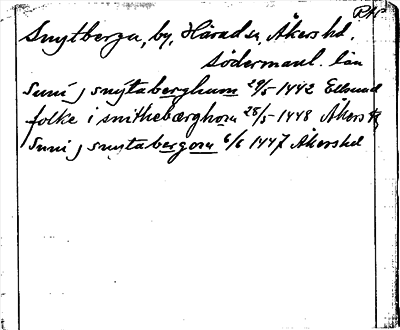 RAP
Snytberga, by, Härad sn, Åkers hd.
södermanl. län
Suni j snytaberghum 29/5 1442 Eklund
folke i snithebærghom 28/5 1448 Åkers
Suni j snytabergom 6/6 1447 Åkers hd